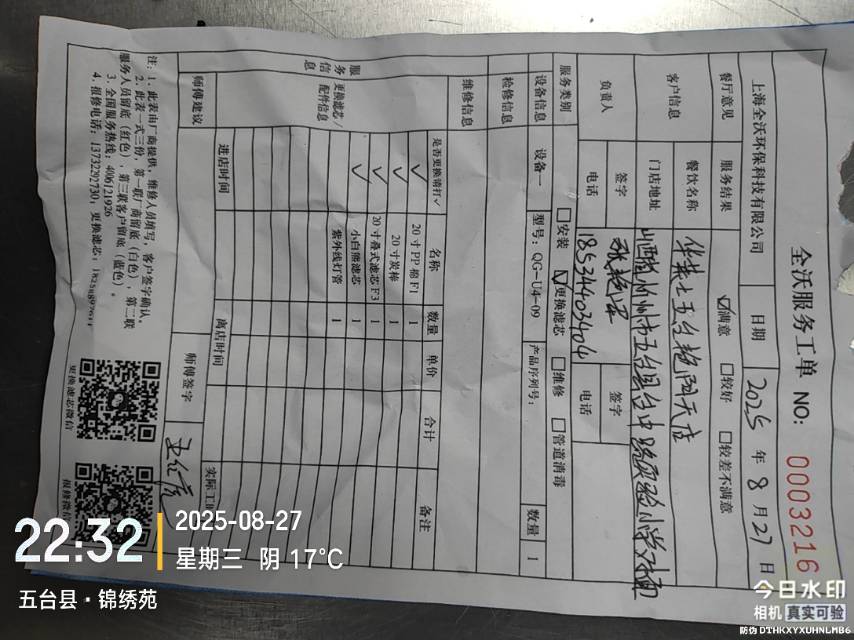 全沃服务工单 NO: 0003216
上海全沃环保科技有限公司 日期 2025 年 8 月 27 日
餐厅意见 服务结果 ☑满意 □较好 □较差不满意
客户信息 餐饮名称 华莱士五台艳阳天店
门店地址 山西省忻州市五台县台中路实验小学对面
负责人 签字 签字
电话 18534403404 电话
服务类别 □安装 ☑更换滤芯 □维修 □管道消毒
设备信息 设备一 型号: QG-U4-09 产品序列号: 数量 1
检修信息
维修信息
服务信息
更换滤芯/配件信息 是否更换请打✓ 名称 数量 单价 合计 备注
✓ 20寸PP棉F1 1
✓ 20寸炭棒 1
✓ 20寸叠式滤芯F3 1
✓ 小白熊滤芯 1
紫外线灯管 1
师傅建议
进店时间 离店时间 实际工
师傅签字
注: 1、此表由厂商提供, 维修人员填写, 客户签字确认。
2、此表一式三份, 第一联厂商留底(白色), 第二联
服务人员留底(红色), 第三联客户留底(蓝色)。
3、全国服务热线: 406121926
4、报修电话: 13732292730; 更换滤芯:
更换滤芯微信
报修微信
22:32
2025-08-27
星期三 阴 17°C
五台县·锦绣苑
今日水印
相机 真实可验
防伪 DTHKXYXUHNLMB6